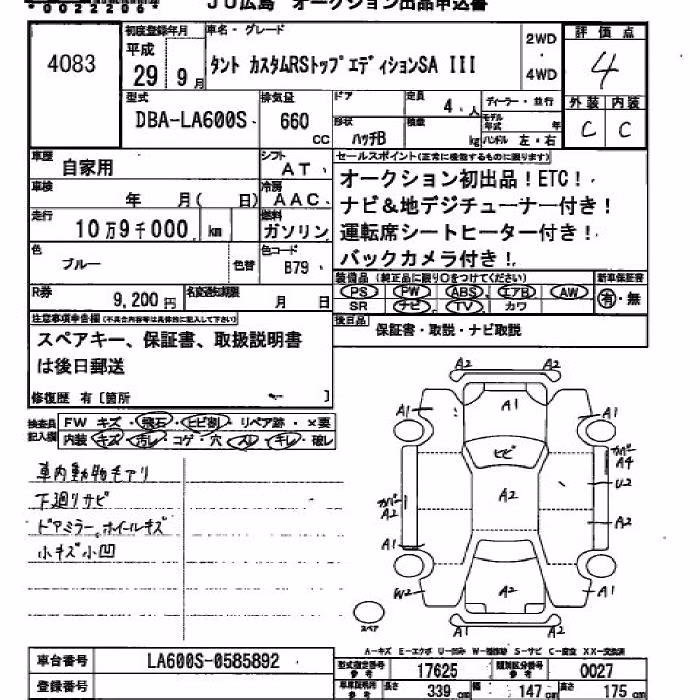 *0022206*
JU広島 オークション出品申込書
4083
初度登録年月
平成
29 9月
車名・グレード
タント カスタムRSトップエディションSA III
2WD
・
4WD
評価点
4
型式
DBA-LA600S
排気量
660
CC
ドア
形状
ハッチB
定員
4 人
積載
kg
ディーラー・並行
モデル年式 年
ハンドル 左・右
外装 内装
C C
車歴
自家用
シフト
AT
車検
年 月( 日)
冷房
AAC
走行
10万9千000 km
燃料
ガソリン
色
ブルー
色替
色コード
B79
R券
9,200円
名変通知期限
月 日
セールスポイント(正常に機能するものに限ります)
オークション初出品!ETC!
ナビ&地デジチューナー付き!
運転席シートヒーター付き!
バックカメラ付き!
装備品 (純正品に限り○をつけてください)
PS PW ABS エアB AW
SR ナビ TV カワ
新車保証書
有・無
後日品
保証書・取説・ナビ取説
注意事項申告欄(不具合内容等は具体的に記入して下さい)
スペアキー、保証書、取扱説明書
は後日郵送
修復歴 有〔箇所 〕
検査員
記入欄
FW キズ・飛石・ヒビ割・リペア跡・×要
内装 キズ・汚レ・コゲ・穴・スレ・キレ・破レ
車内動物毛アリ
下廻リサビ
ドアミラー、ホイールキズ
小キズ小凹
A2 A2
A1 A1 A1
ヒビ
カバー
A4
U2
カバー
A2
A2
A2
A1 A1
W2 A2
A1 A2
スペア
A-キズ E-エクボ U-凹み W-補修跡 S-サビ C-腐蝕 XX-交換済
車台番号
LA600S-0585892
登録番号
型式指定番号
参考
17625
類別区分番号
参考
0027
車庫証明用
参考
長さ
339 cm
幅
147 cm
高さ
175 cm